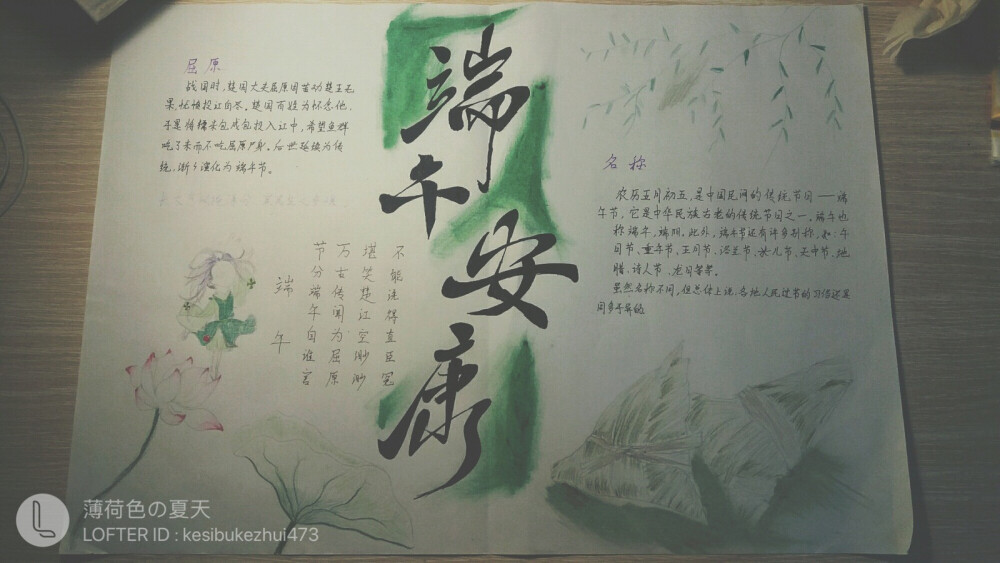 屈原
战国时,楚国大夫屈原因苦劝楚王无
果,怅惘投江自尽。楚国百姓为怀念他,
于是将糯米包成包投入江中,希望鱼群
吃了米而不吃屈原尸身。后世延续为传
统,渐渐演化为端午节。
端午安康
名称
农历五月初五,是中国民间的传统节日——端
午节,它是中华民族古老的传统节日之一。端午也
称端午,端阳。此外,端午节还有许多别称,如:午
日节、重午节、五月节、浴兰节、女儿节、天中节、地
腊、诗人节、龙日等等。
虽然名称不同,但总体上说,各地人民过节的习俗还是
同多于异的
端午
节分端午自谁言
万古传闻为屈原
堪笑楚江空渺渺
不能洗得直臣冤
薄荷色の夏天
LOFTER ID : kesibukezhui473